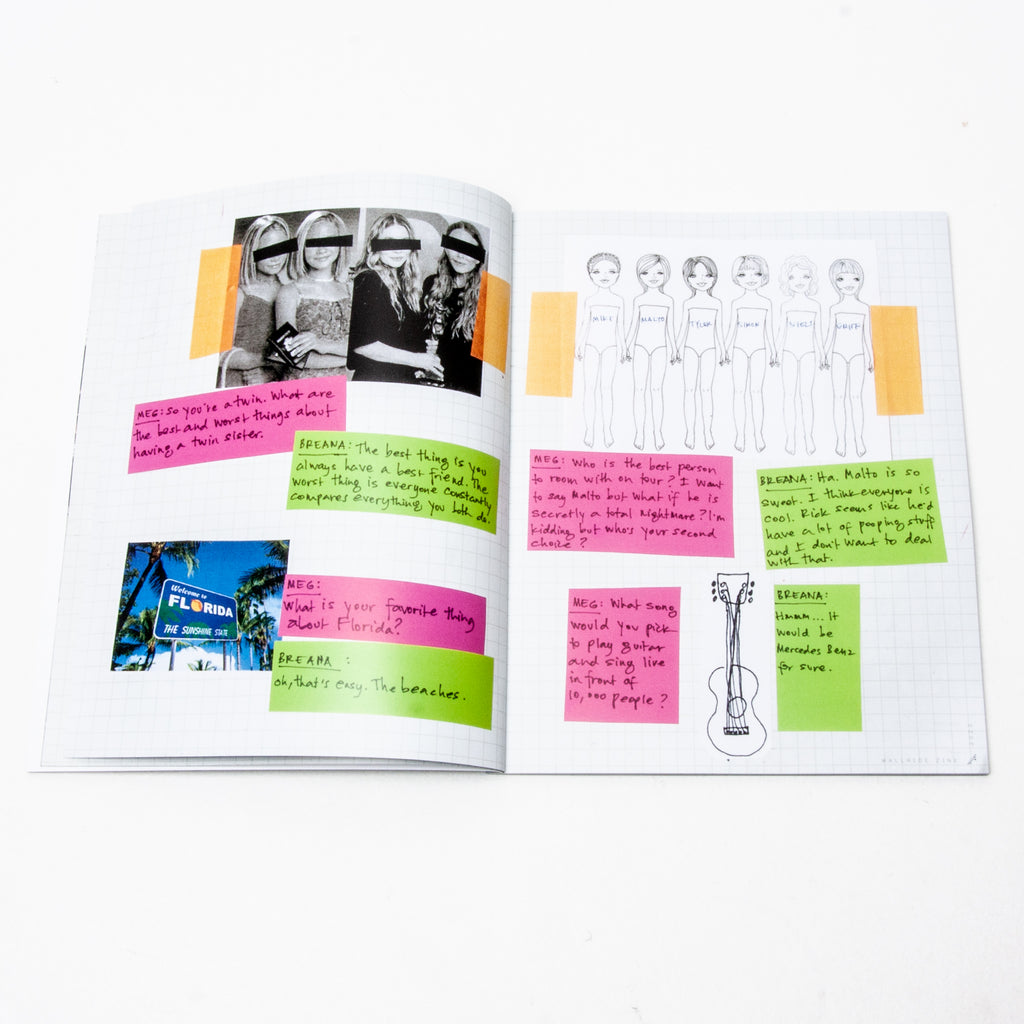 MEG: So you're a twin. What are
the best and worst things about
having a twin sister.
BREANA: The best thing is you
always have a best friend. The
worst thing is everyone constantly
compares everything you both do.
Welcome to
FLORIDA
THE SUNSHINE STATE
MEG:
What is your favorite thing
about Florida?
BREANA :
oh, that's easy. The beaches.
MIKE MALTO TYLER
MEG: Who is the best person
to room with on tour? I want
to say Malto but what if he is
secretly a total nightmare? I'm
kidding but who's your second
choice?
BREANA: Ha. Malto is so
sweet. I think everyone is
cool. Rick seems like he'd
have a lot of pooping stuff
and I don't want to deal
with that.
MEG: What song
would you pick
to play guitar
and sing live
in front of
10,000 people?
BREANA:
Hmmm... It
would be
Mercedes Benz
for sure.
WALLRIDE ZINE